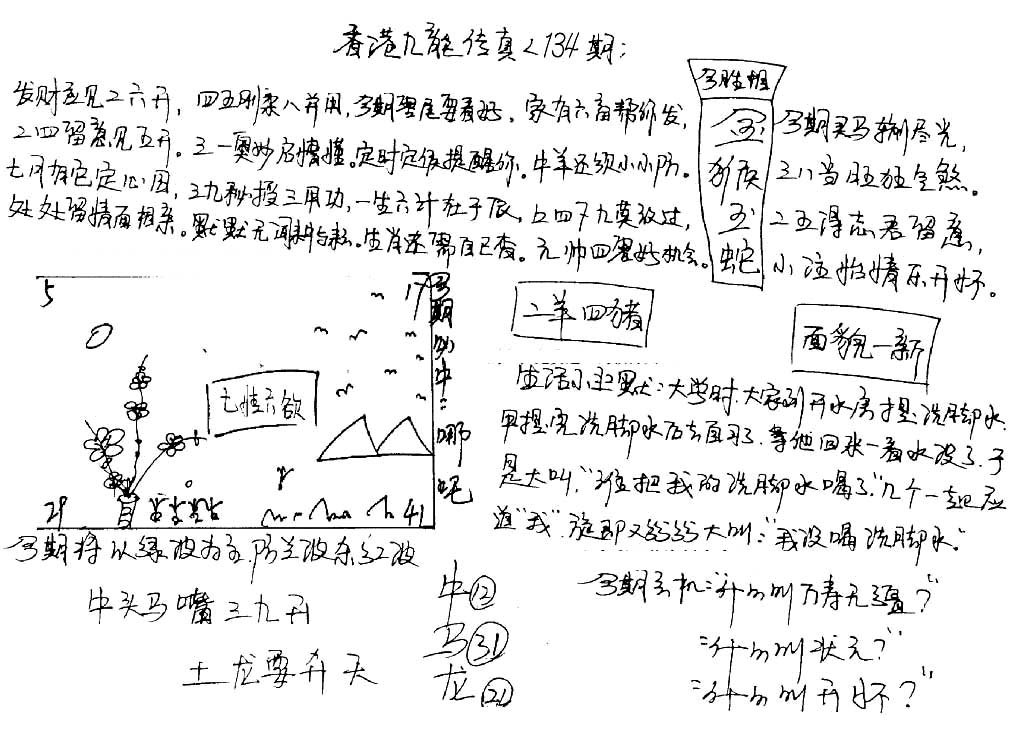 香港九龍传真<134期:
发财意见二六开,四五刚柔八并用,今期蛋尾要看好。家有六畜帮你发,
二四留意见五开。三一奥妙启情懂。定时定位提醒你。牛羊还须小小防。
七同有它定心用,三九秒授三用功,一生六计在于辰,五四7九莫放过,
处处留情面相亲。默默无闻耕与耘。生肖还需自己查。元帅四蛋好机会。
今胜组
金
猴
玉
蛇
今期灵马输尽光,
三八当旺狂全煞。
二五得志君留意,
小注怡情乐开怀。
5
17
七情六欲
29
41
今期必中:哪吒
二羊四猪
面貌一新
生活小幽默:大学时,大家到开水房提洗脚水.
甲提完洗脚水后去自习了.等他回来一看水没了.于
是大叫,"谁把我的洗脚水喝了."几个一起应
道"我".旋即又纷纷大叫:"我没喝洗脚水."
今期将以绿波为主.防兰波杀红波
牛头马嘴三九开
土龙要升天
牛⑫
马㉛
龙
今期玄机:"什么叫万寿无疆?"
:"什么叫状元?"
:"什么叫开怀?"